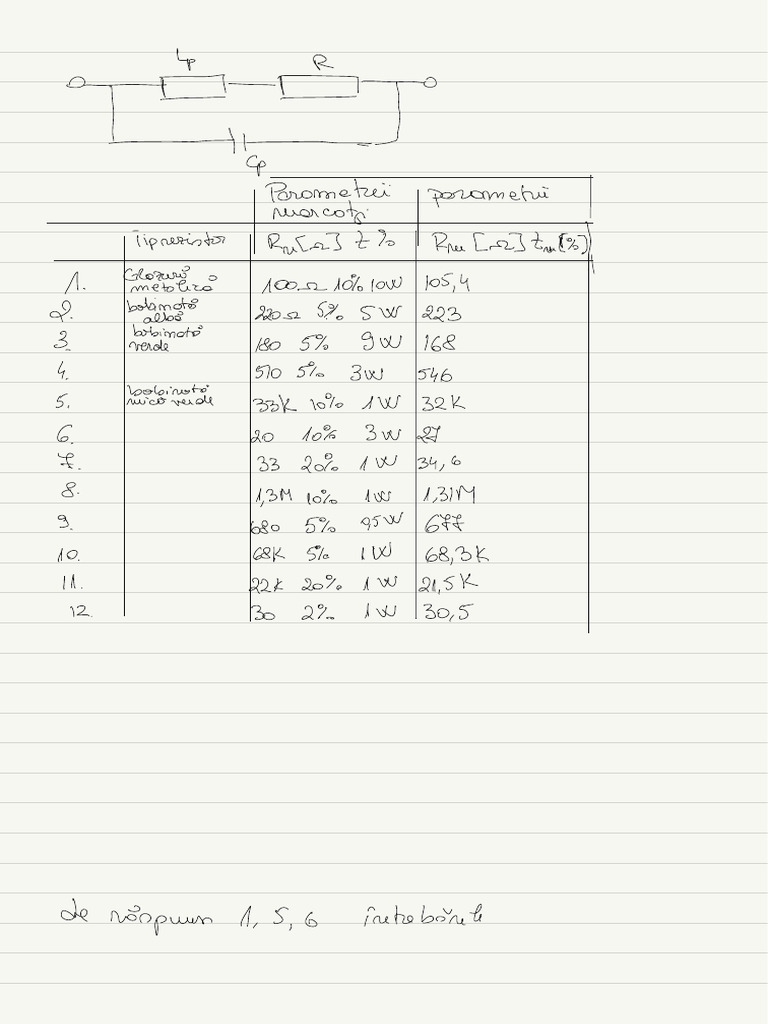 Lp R
Cp
Parametrii parametrii
marcați
Tip rezistor Rn[Ω] t% Rm [Ω] tm[%]
1. Glazură metalică 100Ω 10% 10W 105,4
2. bobinată albă 220Ω 5% 5W 223
3. bobinată verde 180 5% 9W 168
4. 510 5% 3W 546
5. bobinată mică verde 33K 10% 1W 32K
6. 20 10% 3W 27
7. 33 20% 1W 34,6
8. 1,3M 10% 1W 1,31M
9. 680 5% 0,5W 677
10. 68K 5% 1W 68,3K
11. 22K 20% 1W 21,5K
12. 30 2% 1W 30,5
de răspuns 1, 5, 6 întrebările